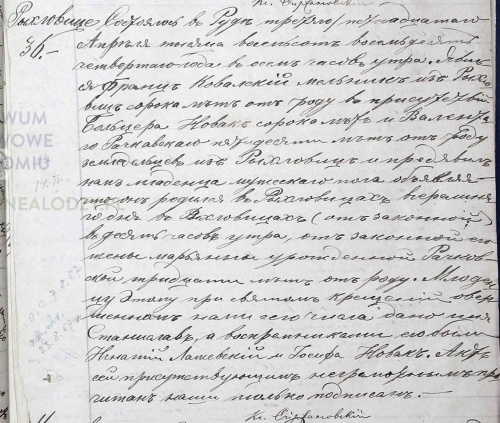 Кс. Стржаковский
Рыхловице Состоялось в Руде третьего / пятнадцатаго
36. Апреля тысяча восемьсот восемьдесят
четвертаго года в осем часов утра. Явил
ся Франц Ковальский мельник из Рыхло
виц сорока лет от роду в присутствии
Бальцера Новак сорока лет и Вален
го Рачкавскаго пятидесяти лет от роду
земледельцев из Рыхловиц и предъявил
нам младенца мужескаго пола объявляя
что он родился в Рыхловицах вчерашня
го дня в Рыхловицах (от законной)
в десять часов утра, от законной его
жены Марьянны урожденной Рачков
ской тридцати лет от роду. Младен
цу этому при святом крещении совер
шенном нами сего числа дано имя
Станислав, а восприемниками его были
Игнатий и Иосифа Новак. Акт
сей присутствующим неграмотным про
читан нами только подписан.
Кс.
WUM
WOWE
OMIU
NEALODZ